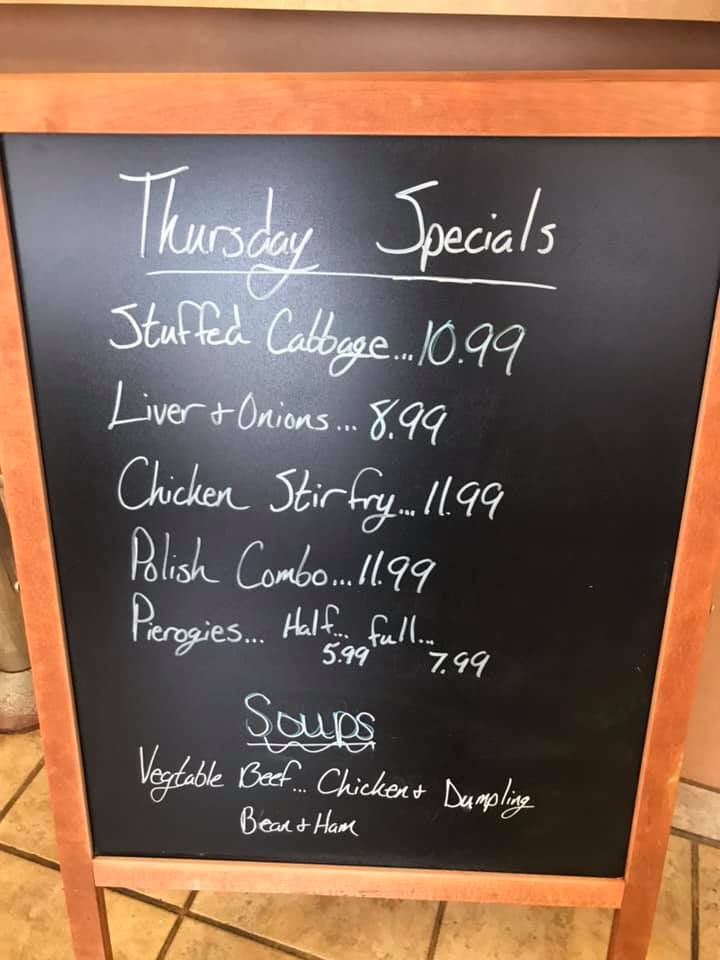 Thursday Specials
Stuffed Cabbage...10.99
Liver + Onions... 8.99
Chicken Stir fry... 11.99
Polish Combo... 11.99
Pierogies... Half... full...
5.99 7.99
Soups
Vegtable Beef... Chicken + Dumpling
Bean + Ham